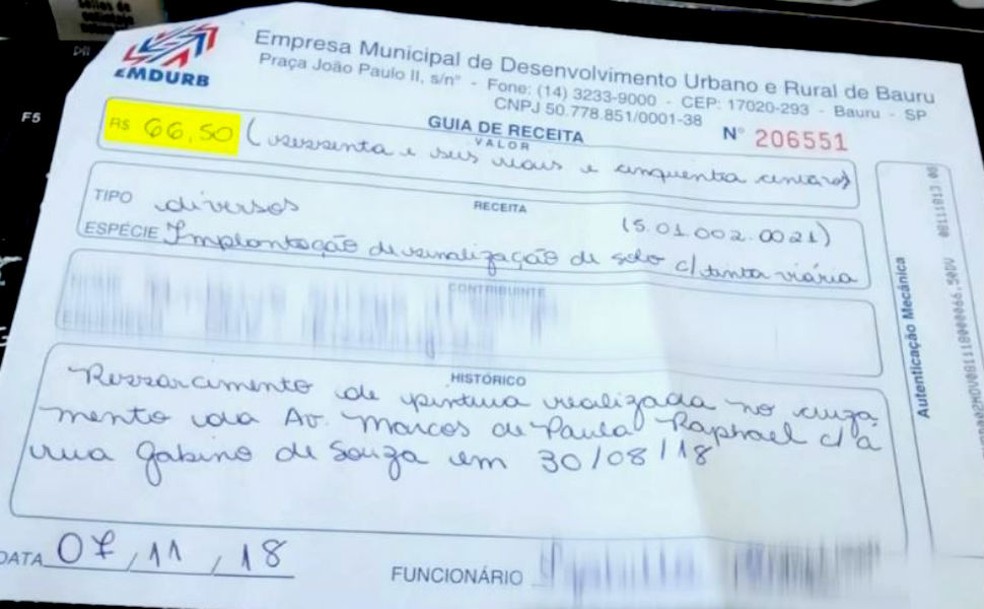 F5
EMDURB
Empresa Municipal de Desenvolvimento Urbano e Rural de Bauru
Praça João Paulo II, s/n° - Fone: (14) 3233-9000 - CEP: 17020-293 - Bauru - SP
CNPJ 50.778.851/0001-38
GUIA DE RECEITA
N° 206551
VALOR
R$ 66,50 (sessenta e seis reais e cinquenta centavos)
TIPO diversos
RECEITA
(5.01.002.0021)
ESPÉCIE Implantação de sinalização de solo c/ tinta viária
CONTRIBUINTE
HISTÓRICO
Ressarcimento de pintura realizada no cruza
mento da Av. Marcos de Paula Raphael c/ a
rua Gabino de Souza em 30/08/18
DATA 07/11/18
FUNCIONÁRIO
Autenticação Mecânica